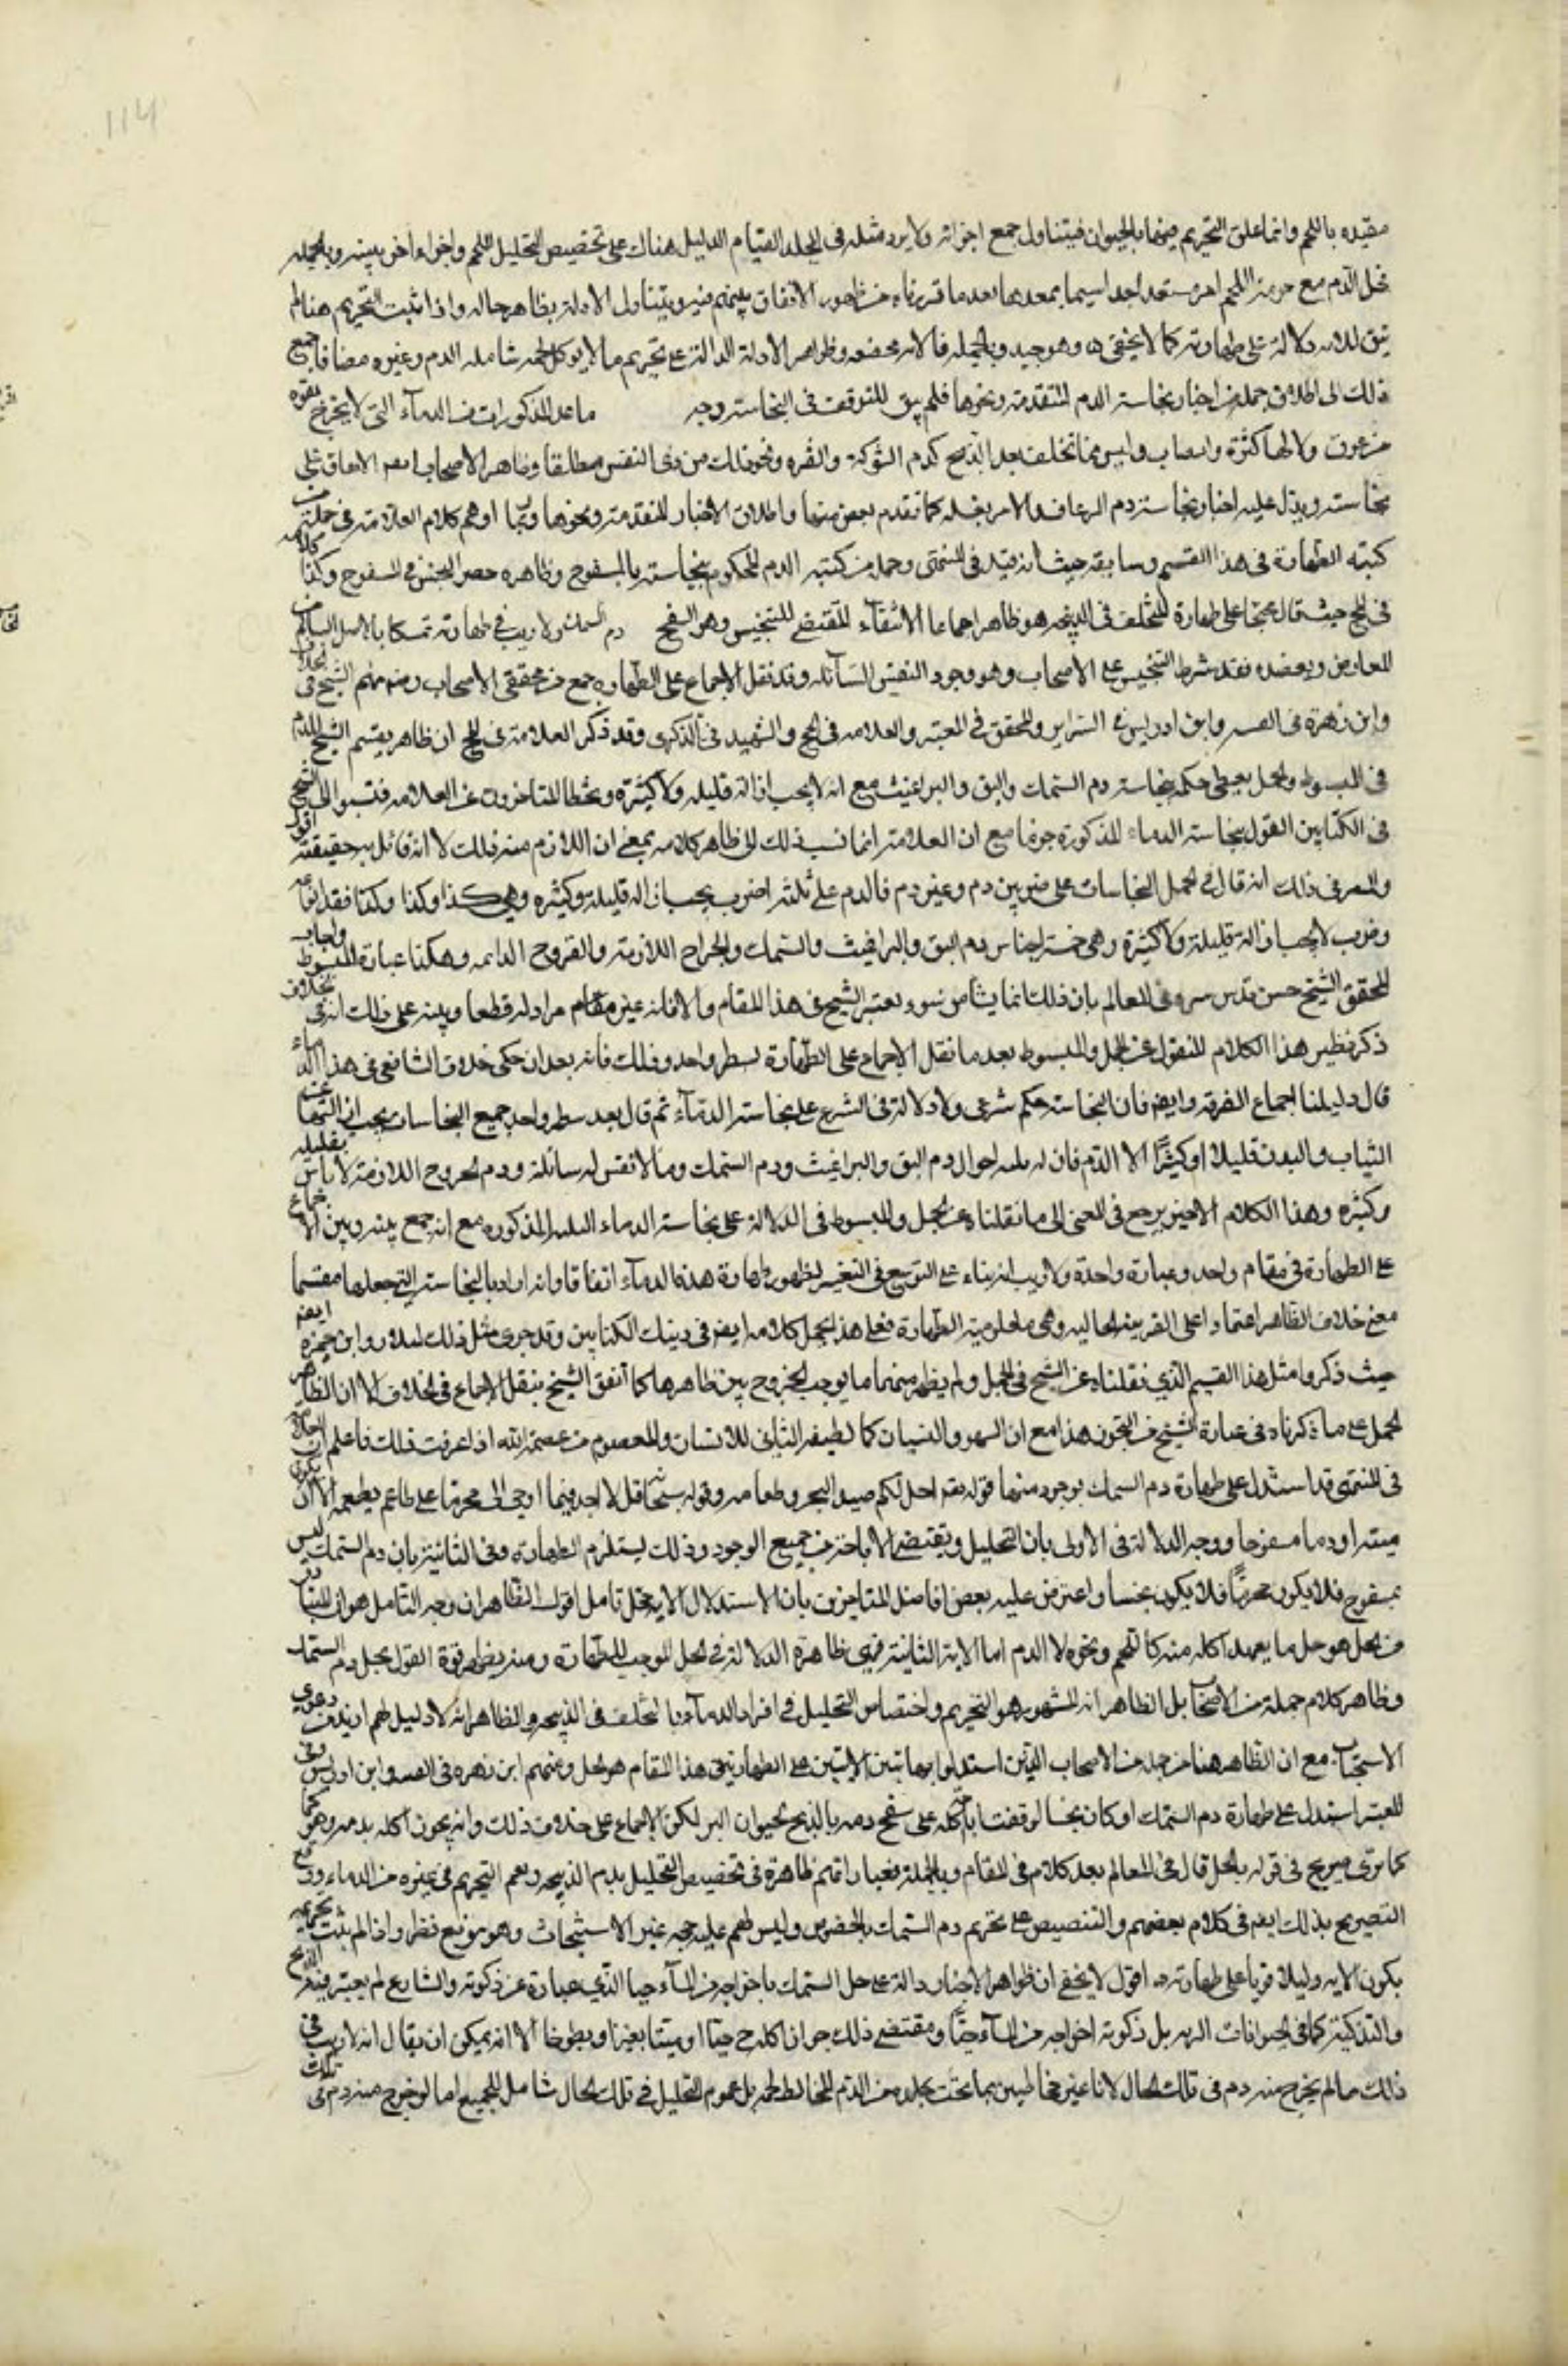 114
مقيده باللحم وانما علق التحريم فيهما بالحيوان فيتناول جمع اجزائه ولا يرد مثله في الجلد لقيام الدليل هناك على تخصيص التحليل اللحم واجزاء اخر بينه وبالجمله
فحل الدم مع حرمة اللحم امر مستبعد جدا سيما بعد ما قررناه من ظهور الاتفاق بينهم فيه ويتناول الادلة بظاهرها له واذا ثبت التحريم هنا لم
يبق للآية دلالة على طهارته كما لا يخفى اه وهو جيد وبالجمله فالآية وظواهر الادلة الدالة على تحريم ما لا يؤكل لحمه شامله الدم وغيره مضافا جميع
ذلك الى اطلاق جملة من اخبار نجاسة الدم المتقدمة ونحوها فلم يبق للتوقف في النجاسة وجه ما عدا المذكورات من الدماء التي لا يخرج بقوه
من عرق ولا لها كثرة وانصباب وليس مما تخلف بعد الذبح كدم الشوكة والعثره ونحو ذلك من ذي النفس مطلقا وظاهر الاصحاب ايضا الاتفاق على
نجاسته ويدل عليه اخبار نجاسة دم الرعاف والامر بغسله كما تقدم بعض منها واطلاق الاخبار المتقدمة ونحوها وربما اوهم كلام العلامة في جملة من
كتبه الطهارة في هذا القسم وسابقه حيث انه قيد في المنتهى وجملة من كتبه الدم المحكوم بنجاسته بالمسفوح وظاهره حصر النجس في المسفوح وكذا كلامه
في لح حيث قال محتجا على طهارة المتخلف في الذبيحه هو ظاهر اجماعا لانتفاء المقتضي للتنجيس وهو السفح دم السمك ولا ريب في طهارته تمسكا بالاصل السالم من
المعارض ويعضده فقد شرط التنجيس على الاصحاب وهو وجود النفس السائله وقد نقل الاجماع على الطهاره جمع من محققي الاصحاب ومنهم الشيخ في الخلاف
وابن زهرة في الغنيه وابن ادريس في السرائر والمحقق في المعتبر والعلامه في لح والشهيد في الذكرى وقد ذكر العلامة في لح ان ظاهر تقسيم الشيخ للدم
في المبسوط والجمل يعطي حكمه بنجاسة دم السمك والبق والبراغيث مع انه لا يجب ازالة قليله ولا كثيره وتخطا المتاخرون عن العلامه فنسبوا الى الشيخ
في الكتابين القول بنجاسة الدماء المذكورة جزما مع ان العلامة انما نسب ذلك الى ظاهر كلامه بمعنى ان اللازم منه ذلك لا انه قائل به حقيقته اقول
والسر في ذلك انه قال في الجمل النجاسات على ضربين دم وغير دم فالدم على ثلثه اضرب يجب ازالة قليله وكثيره وهي كذا وكذا وكذا فقد انواعه
وضرب لا يجب ازالة قليلة ولا كثيرة وهي خمسة اجناس دم البق والبراغيث والسمك والجراح اللازمة والقروح الدائمه وهكذا عبارة المبسوط واجاب
المحقق الشيخ حسن قدس سره في المعالم بان ذلك انما ينشأ من سوء تعبير الشيخ في هذا المقام والا فانه غير مراد له قطعا وينبه على ذلك انه في الخلاف
ذكر نظير هذا الكلام المنقول عن الجمل والمبسوط بعد ما نقل الاجماع على الطهارة بسطر واحد وذلك فانه بعد ان حكى خلاف الشافعي في هذا الدماء
قال دليلنا اجماع الفرقه وايضا فان النجاسة حكم شرعي ولا دلالة في الشرع على نجاسة الدماء ثم قال بعد سطر واحد جميع النجاسات يجب ازالتها عن
الثياب والبدن قليلا او كثيرا الا الدم فان له احوال دم البق والبراغيث ودم السمك وما لا نفس له سائلة ودم الجروح اللازمة لا باس بقليله
وكثيره وهذا الكلام الاخير يرجع في المعنى الى ما نقلناه عن الجمل والمبسوط في الدلالة على نجاسة الدماء المذكوره مع انه جمع بينه وبين الاجماع
على الطهارة في مقام واحد وعبارة واحدة ولا ريب انه بناء على التوسع في التعبير لظهور طهارة هذه الدماء اتفاقا وانه اراد بالنجاسة التي جعلها مقسما
معنى خلاف الظاهر اعتمادا على القرينه الحاليه وهي معلومية الطهارة فعلى هذا يحمل كلامه ايضا في ذينك الكتابين وقد جرى مثل ذلك لسلار وابن حمزه ايضا
حيث ذكروا مثل هذا التقسيم الذي نقلناه عن الشيخ في الجمل ولم يظهر منهما ما يوجب الخروج بين ظاهرها كما اتفق الشيخ بنقل الاجماع في الخلاف الا ان الظاهر
الحمل على ما ذكرناه في عبارة الشيخ من التجوز هذا مع ان السهو والنسيان كالطبيعة الثانية للانسان والمعصوم من عصمه الله اذا عرفت ذلك فاعلم ان
في المنتهى قد استدل على طهارة دم السمك بوجوه منها قوله تعالى احل لكم صيد البحر وطعامه وقوله سبحانه قل لا اجد فيما اوحي الى محرما على طاعم يطعمه الا ان يكون
ميتة او دما مسفوحا ووجه الدلالة في الاولى بان التحليل ويقتضي الاباحة من جميع الوجوه وذلك يستلزم الطهارة وفي الثانية بان دم السمك ليس
بمسفوح فلا يكون محرما فلا يكون نجسا واعترض عليه بعض افاضل المتاخرين بان الاستدلال الآية محل تامل اقول الظاهر ان وجه التامل هو ان المتبادر
من الحل هو حل ما يعهد اكله منه كاللحم ونحوه لا الدم اما الاية الثانية فهي ظاهرة الدلالة في الحل الموجب للطهارة ومنه يظهر قوة القول بحل دم السمك
وظاهر كلام جملة من الاصحاب بل الظاهر انه المشهور هو التحريم واختصاص التحليل في افراد الدماء بالمتخلف في الذبيحه والظاهر انه لا دليل لهم ازيد من دعوى
الاستخباث مع ان الظاهر هنا من جملة من الاصحاب الذين استدلوا بهاتين الايتين على الطهارة في هذا المقام هو الحل ومنهم ابن زهره في الغنيه وابن ادريس وفي
المعتبر استدل على طهارة دم السمك لو كان نجسا لوقفت اباحة اكله على سفح دمه بالذبح كحيوان البر لكن الاجماع على خلاف ذلك وانه يجوز اكله بدمه وهو كما
كما ترى صريح في قوله بالحل قال في المعالم بعد كلام في المقام وبالجملة فعباراتهم ظاهرة في تخصيص التحليل بدم الذبيحه وتعم التحريم في غيره من الدماء ووقع
التصريح بذلك ايضا في كلام بعضهم والتنصيص على تحريم دم السمك بالخصوص وليس لهم عليه حجه غير الاستخباث وهو موضع نظر واذا لم يثبت تحريمه
يكون الآيه دليلا قويا على طهارته اه اقول لا يخفى ان ظواهر الاخبار دالة على حل السمك باخراجه من الماء حيا الذي عبارة عن ذكوته والشارع لم يعتبر فيه الذبح
والتذكية كما في الحيوانات البريه بل ذكوته اخراجه من الماء حيا ومقتضى ذلك جواز اكله حيا او ميتا بغيرنا ومطبوخا الا انه يمكن ان يقال انه لا ريب في
ذلك ما لم يخرج منه دم في تلك الحال لانا غير مخاطبين بما تحت جلده من الدم المخالط لحمه بل عموم التحليل في تلك الحال شامل للجميع اما لو خرج منه دم في تلك